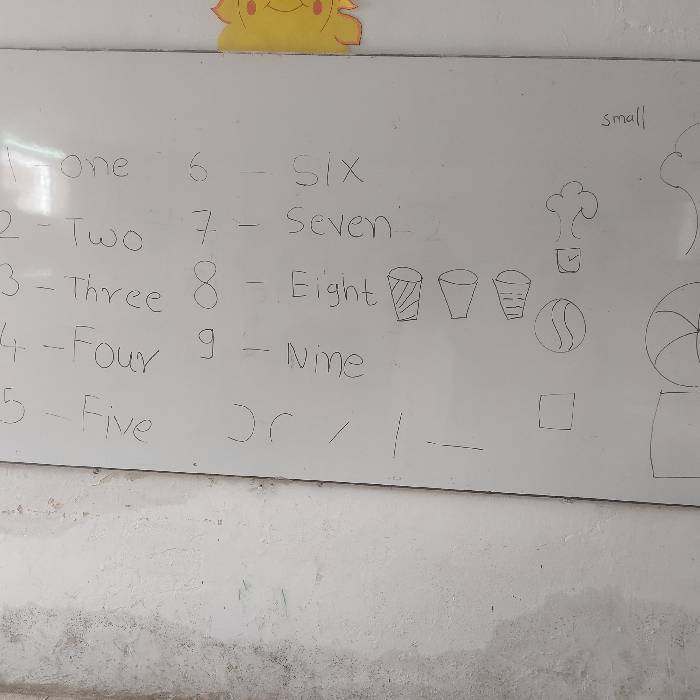 small
1 - one 6 - Six
2 - Two 7 - Seven
3 - Three 8 - Eight
4 - Four 9 - Nine
5 - Five